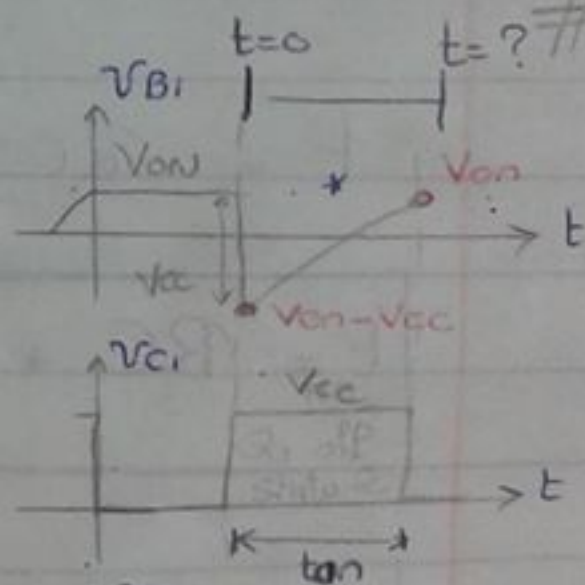 t=0
t=?
VB1
VON
Von
t
Vcc
Von-Vcc
VC1
Vcc
Q1 off
state 2
t
ton